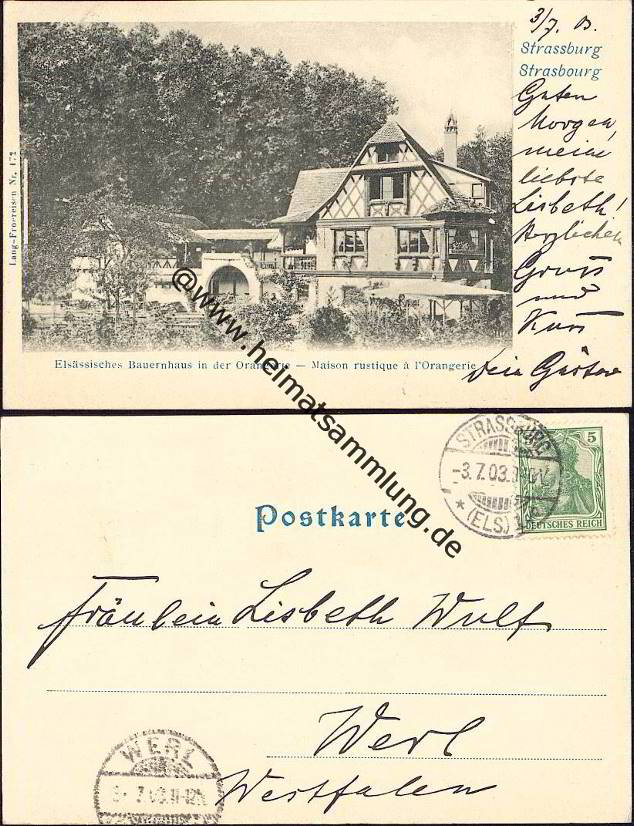 3/7. 03.
Strassburg
Strasbourg
Guten
Morgen,
mein
liebste
Lisbeth!
Herzlichen
Gruss
und
Kuss
Dein Gustav
Lang-Froereisen Nr. 172
Elsässisches Bauernhaus in der Orangerie — Maison rustique à l'Orangerie
@www.heimatsammlung.de
STRASSBURG
-3.7.03.
*(ELS.)
5
DEUTSCHES REICH
Postkarte
Fräulein Lisbeth Wulf
Werl
Westfalen
WERL
7.03.11-12